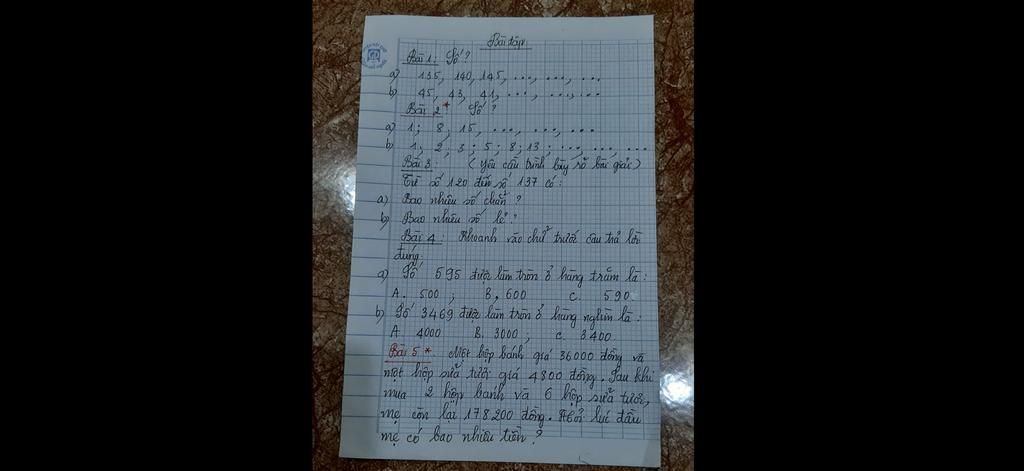 Bài tập
Bài 1: Số?
a) 135, 140, 145, ..., ..., ...
b) 45, 43, 41, ..., ..., ...
Bài 2*: Số?
a) 1; 8; 15, ..., ..., ...
b) 1; 2; 3; 5; 8; 13; ..., ..., ...
Bài 3: (yêu cầu trình bày rõ bài giải)
Từ số 120 đến số 137 có:
a) Bao nhiêu số chẵn?
b) Bao nhiêu số lẻ?
Bài 4: Khoanh vào chữ trước câu trả lời
đúng.
a) Số 595 được làm tròn ở hàng trăm là:
A. 500; B, 600 C. 590.
b) Số 3469 được làm tròn ở hàng nghìn là:
A. 4000 B. 3000; C. 3400.
Bài 5*. Một hộp bánh giá 36000 đồng và
một hộp sữa tươi giá 4800 đồng. Sau khi
mua 2 hộp bánh và 6 hộp sữa tươi,
mẹ còn lại 178200 đồng. Hỏi lúc đầu
mẹ có bao nhiêu tiền?